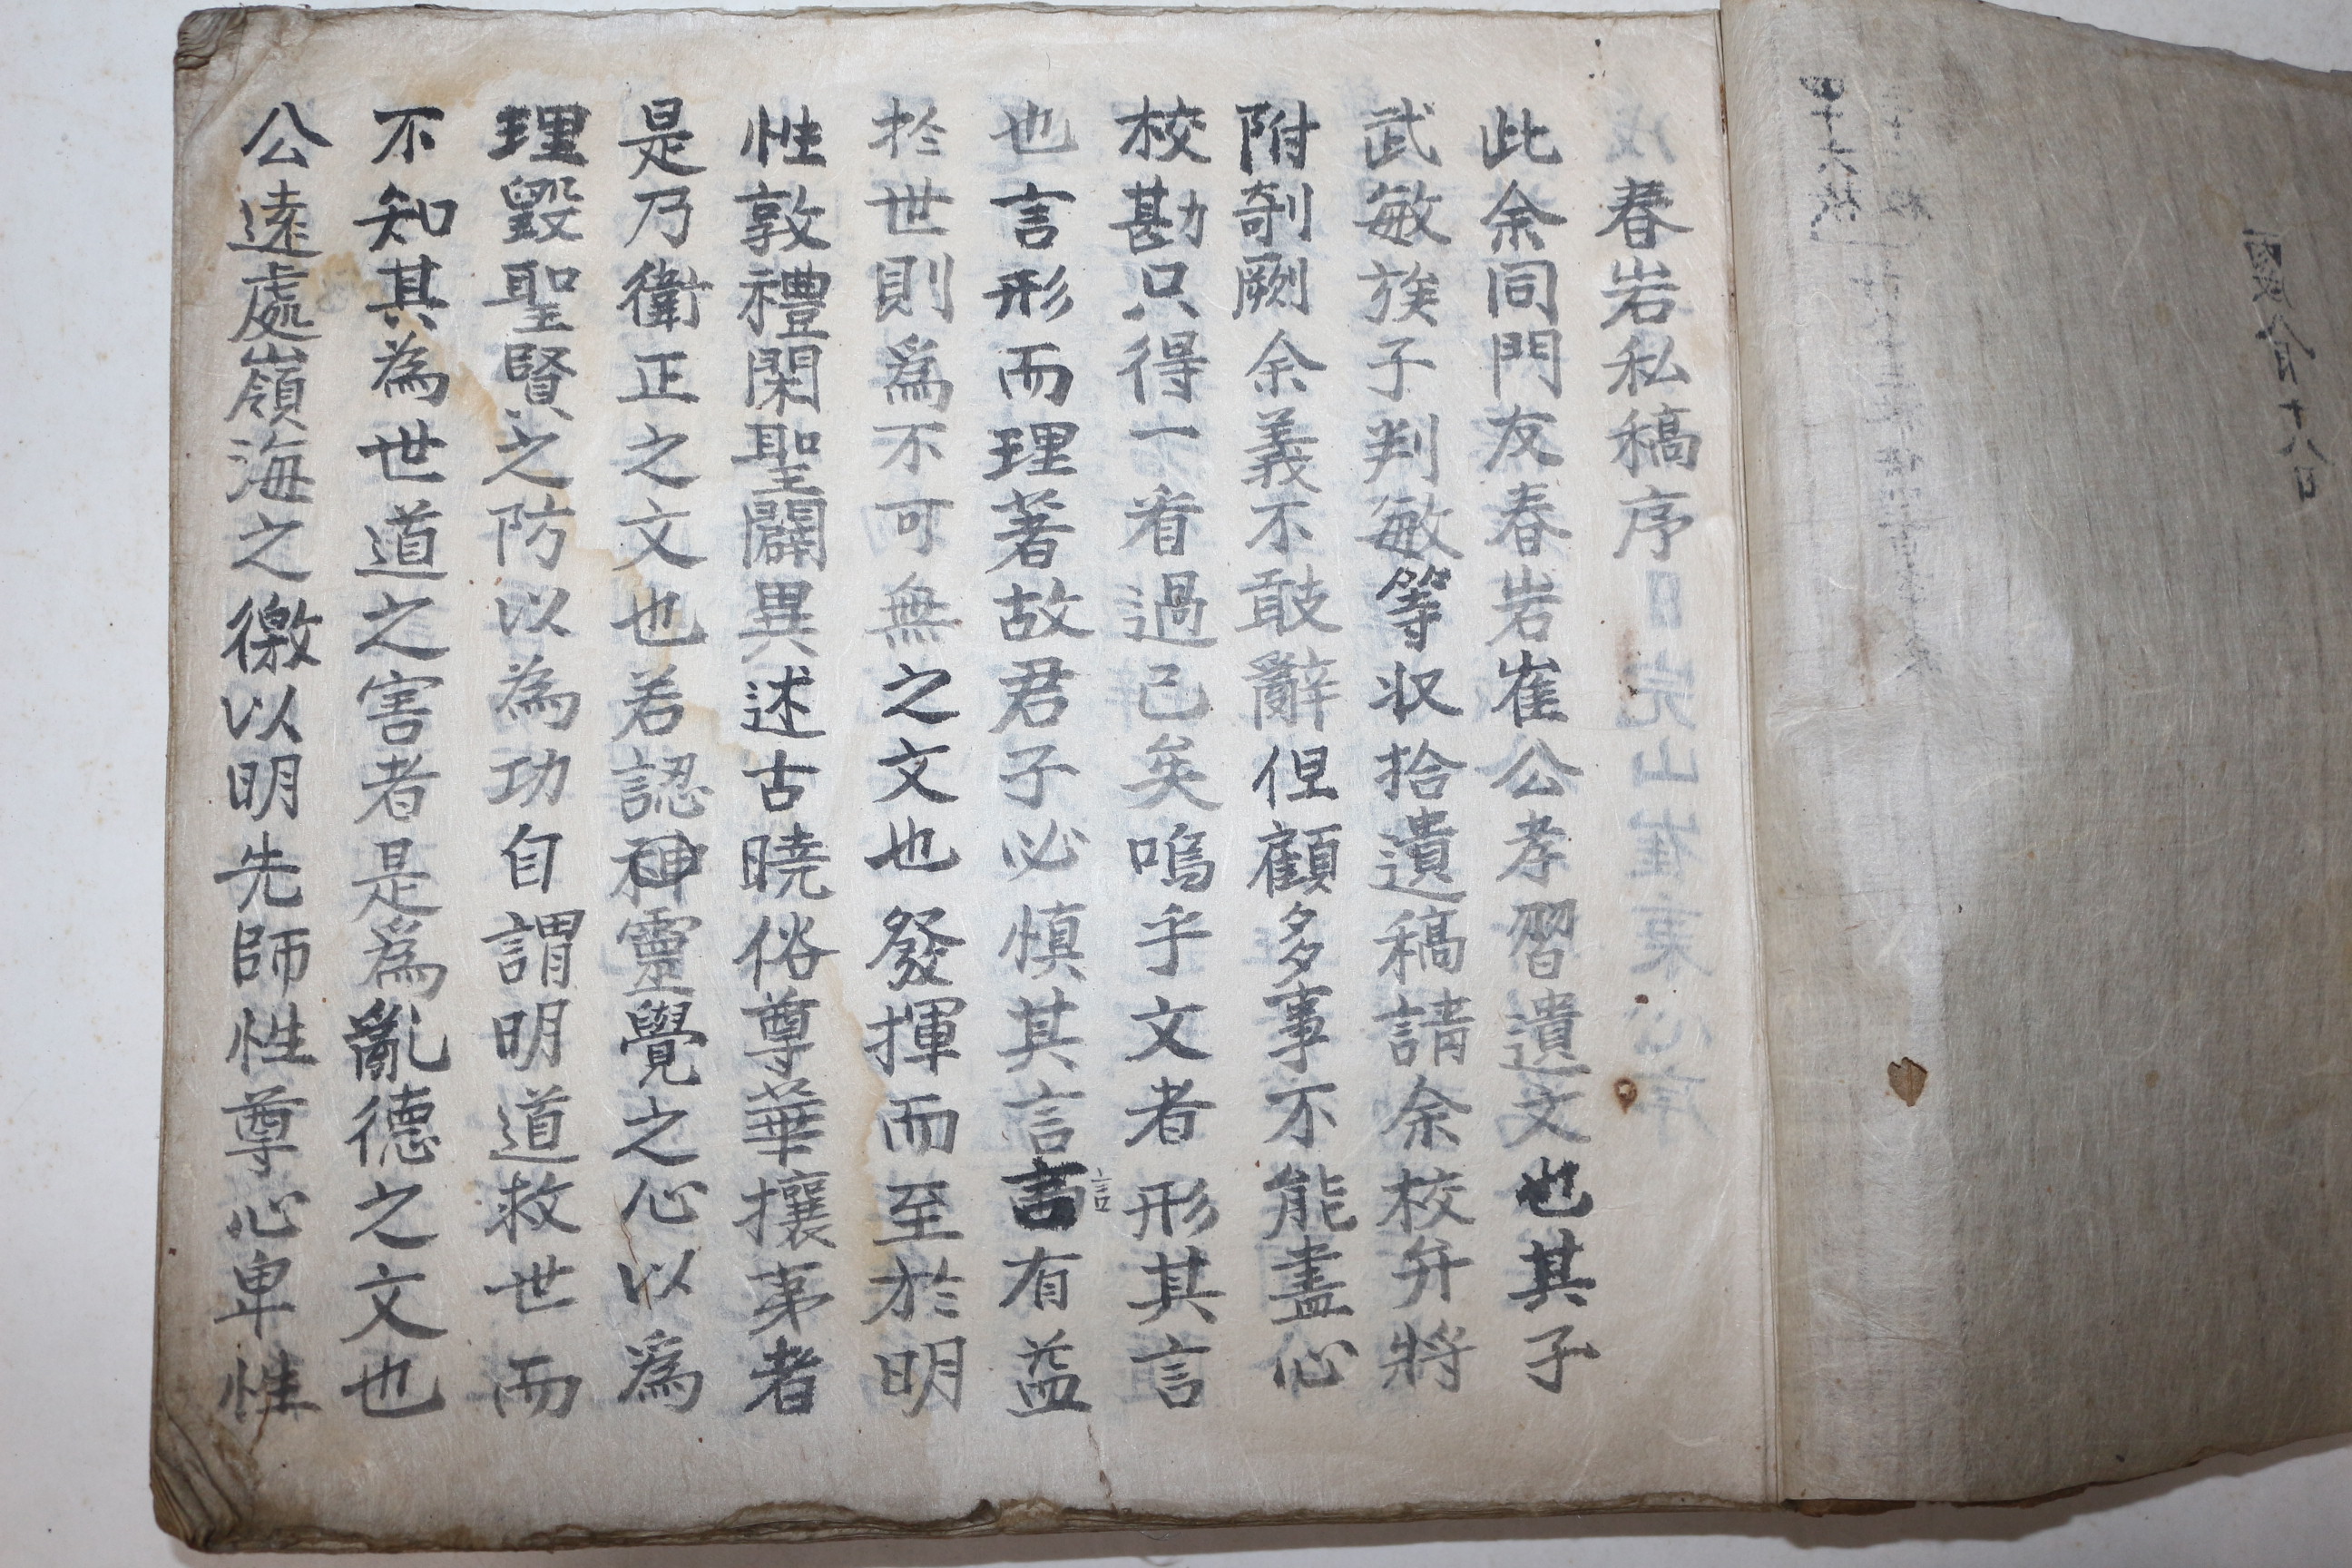 春岩私稿序
此余同門友春岩崔公孝習遺文也其子
武敏族子判敏等収拾遺稿請余校弁將
附剞劂余義不敢辭但顧多事不能盡心
校勘只得一看過已矣嗚乎文者形其言
也言形而理著故君子必慎其言言有益
於世則爲不可無之文也發揮而至於明
性敦禮閑聖闢異述古曉俗尊華攘夷者
是乃衛正之文也若認神靈覺之心以爲
理毀聖賢之防以為功自謂明道救世而
不知其為世道之害者是爲亂德之文也
公遠處嶺海之徼以明先師性尊心卑性
十六
十八日